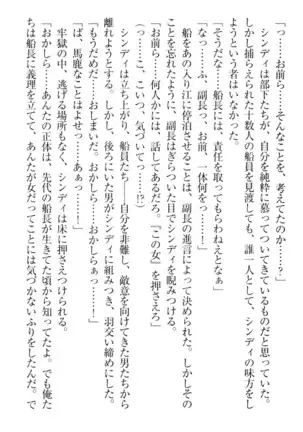 「っ……お前ら……そんなことを、考えてたのか……？」
　シンディは部下たちが、自分を純粋に慕ってついてきているものだと思っていた。
しかし捕らえられた十数人の船員を見渡しても、誰一人として、シンディの味方をし
ようという者はいなかった。
「そうだな……船長には、責任を取ってもらわねえとなぁ」
「なっ……ふ、副長っ、お前、一体何をっ……！」
　船をあの入り江に停泊させることは、副長の進言によって決められた。しかしその
ことを忘れたように、副長はぎらついた目でシンディを睨みつける。
「お前ら、何人かには、話してあるだろ。『この女』を押さえろ」
「っ……こ、こいつ、気づいてっ……っ！」
　シンディは立ち上がり、船員たち――自分を非難し、敵意を向けてきた男たちから
離れようとする。しかし、後ろにいた男がシンディに組みつき、羽交い締めにした。
「もうだめだ……おしまいだ。おかしら……おかしらぁっ……！」
「っ、馬鹿なことはよせっ……！」
　牢獄の中、逃げる場所もなく、シンディは床に押さえつけられる。
「おかしら……あんたの正体は、先代の船長が生きてた頃から知ってたよ。でも俺た
ちは船長に義理を立てて、あんたが女だってことには気づかないふりをしたんだ。で